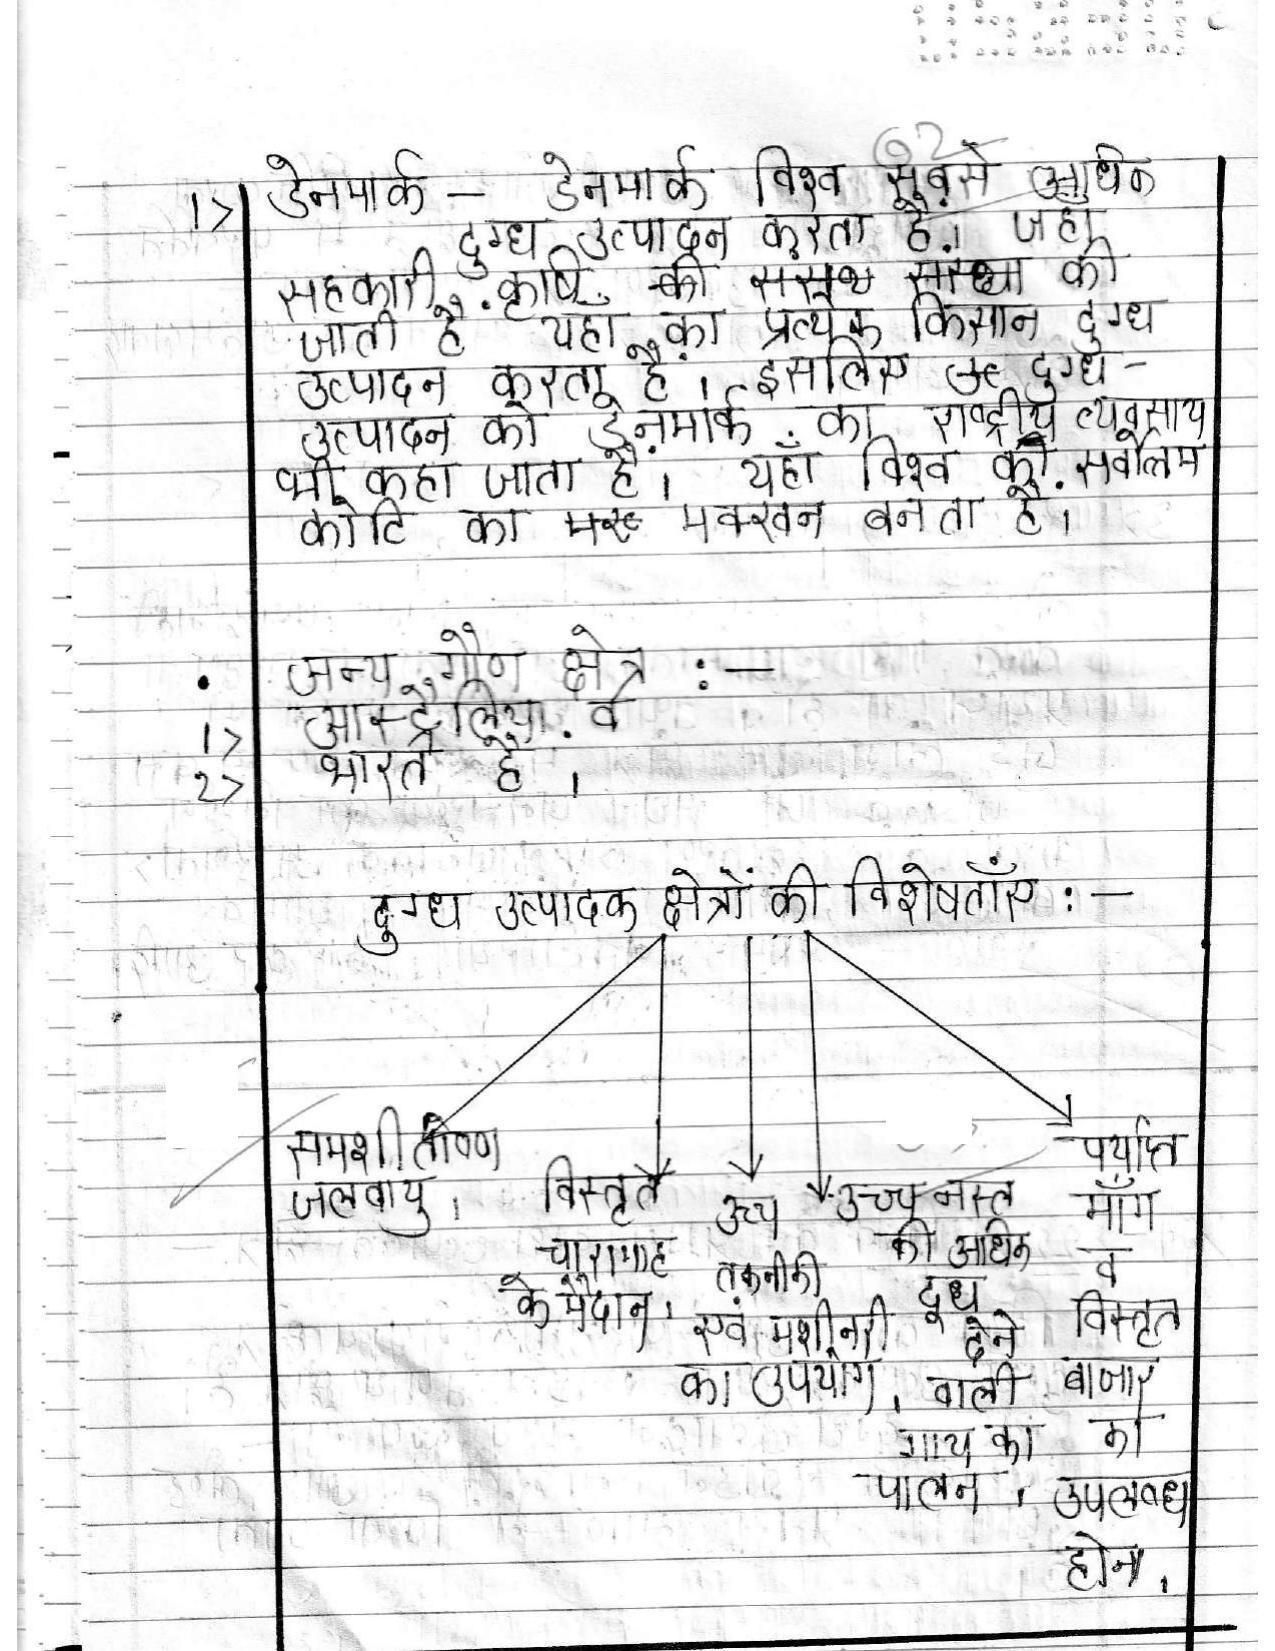 1> डेनमार्क — डेनमार्क विश्व सबसे अधिक
दुग्ध उत्पादन करता है। जहाँ
सहकारी कृषि की संस्था की
जाती है यहाँ का प्रत्येक किसान दुग्ध
उत्पादन करता है। इसलिए दुग्ध -
उत्पादन को डेनमार्क का राष्ट्रीय व्यवसाय
भी कहा जाता है। यहाँ विश्व की सर्वोत्तम
कोटि का मक्खन बनता है।
• अन्य गौण क्षेत्र :—
1> आस्ट्रेलिया व
2> भारत है ।
दुग्ध उत्पादक क्षेत्रों की विशेषताँए : —
समशीतोष्ण
जलवायु ।
विस्तृत
चारागाह
के मैदान ।
उच्च
तकनीकी
एवं मशीनरी
का उपयोग ।
उच्च नस्ल
की अधिक
दूध
देने
वाली
गाय का
पालन ।
पर्याप्त
माँग
व
विस्तृत
बाजार
का
उपलब्ध
होना ।